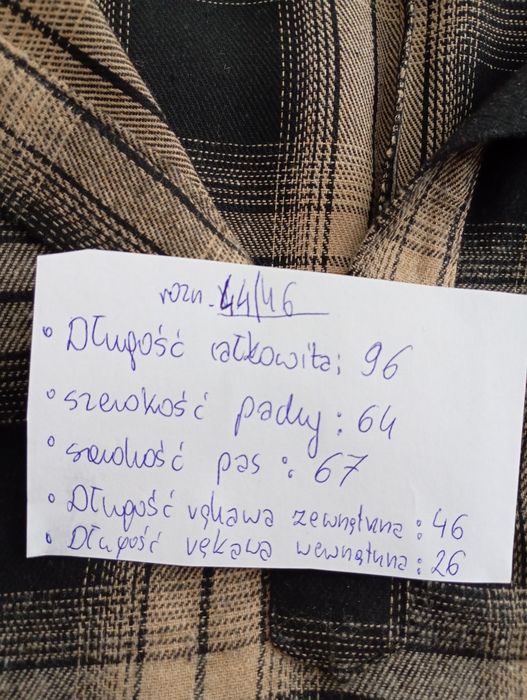 rozn. 44/46
• Długość całkowita: 96
• szerokość pachy: 64
• szerokość pas: 67
• Długość rękawa zewnętrzna: 46
• Długość rękawa wewnętrzna: 26